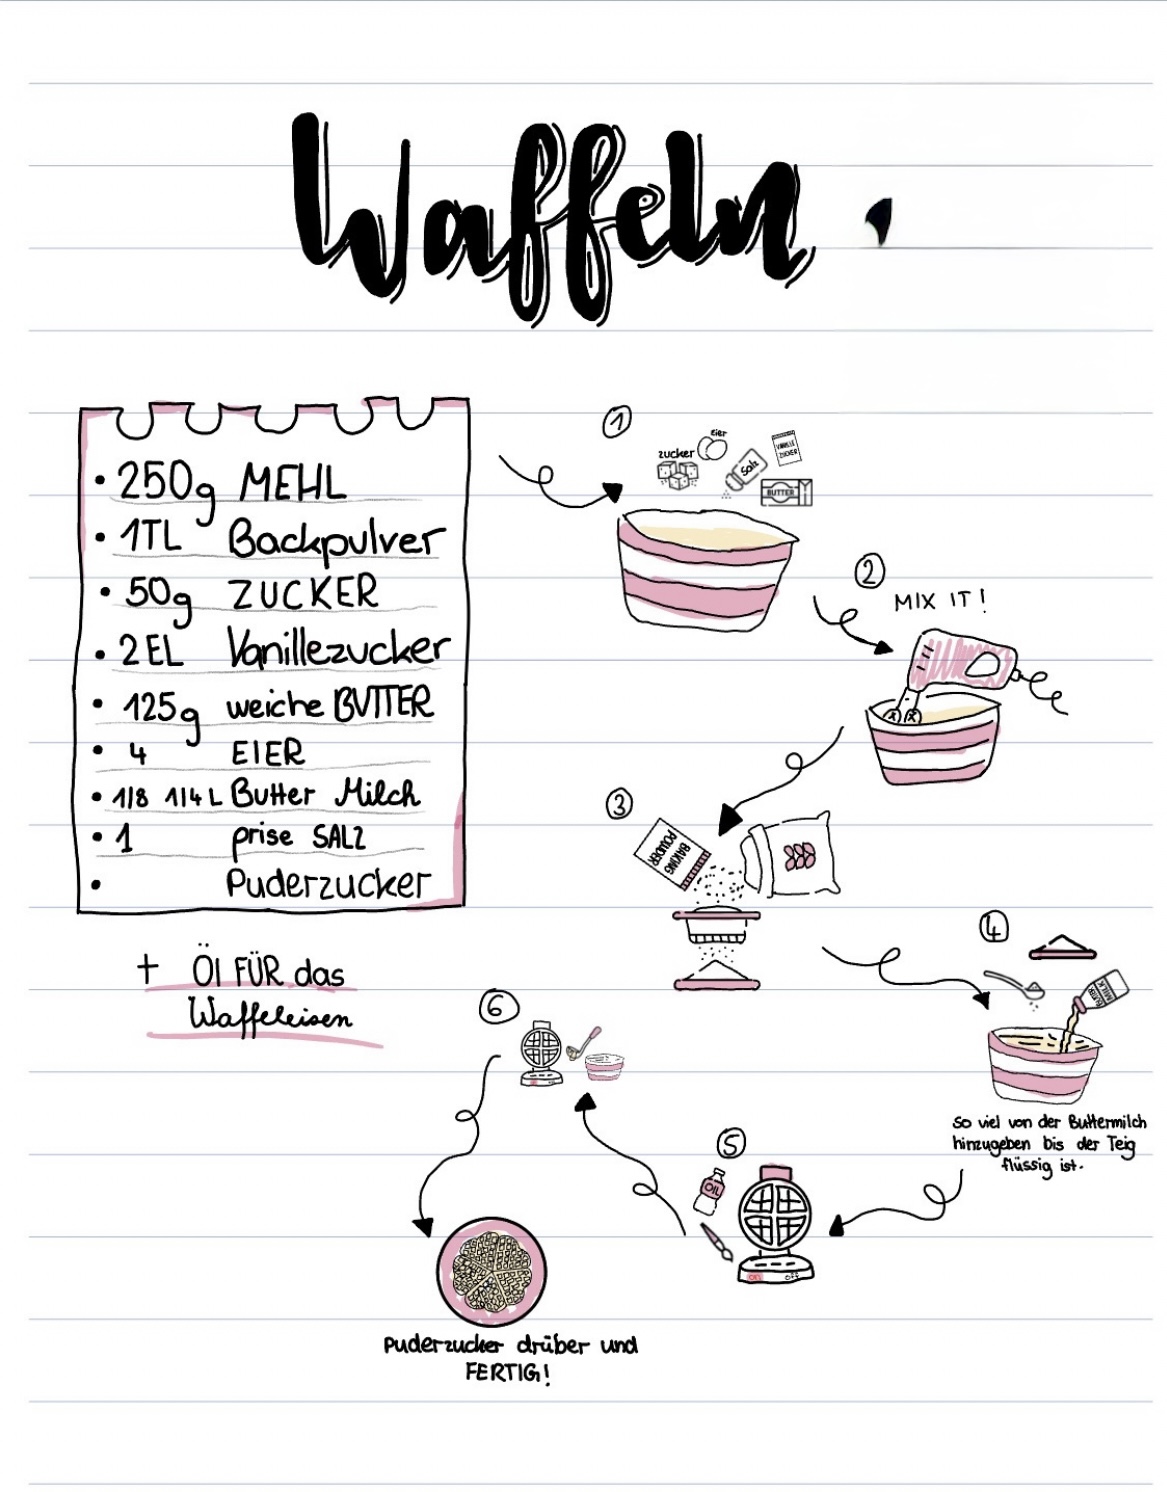 Waffeln
• 250g MEHL
• 1TL Backpulver
• 50g ZUCKER
• 2 EL Vanillezucker
• 125g weiche BUTTER
• 4 EIER
• 1/8 1/4 L Butter Milch
• 1 prise SALZ
• Puderzucker
+ Öl FÜR das
Waffeleisen
1
zucker
Eier
Salz
VANILLE
ZUCKER
BUTTER
2
MIX IT!
3
BAKING
POWDER
4
BUTTER
MILK
So viel von der Buttermilch
hinzugeben bis der Teig
flüssig ist.
5
OIL
on off
6
Puderzucker drüber und
FERTIG!